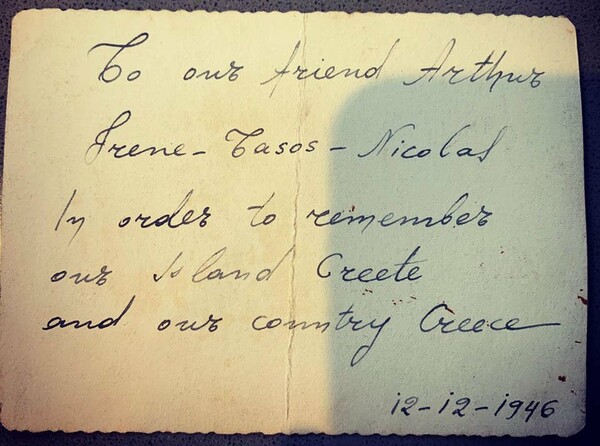 To our friend Arthur
Irene - Tasos - Nicolas
In order to remember
our Island Creete
and our country Greece
12-12-1946